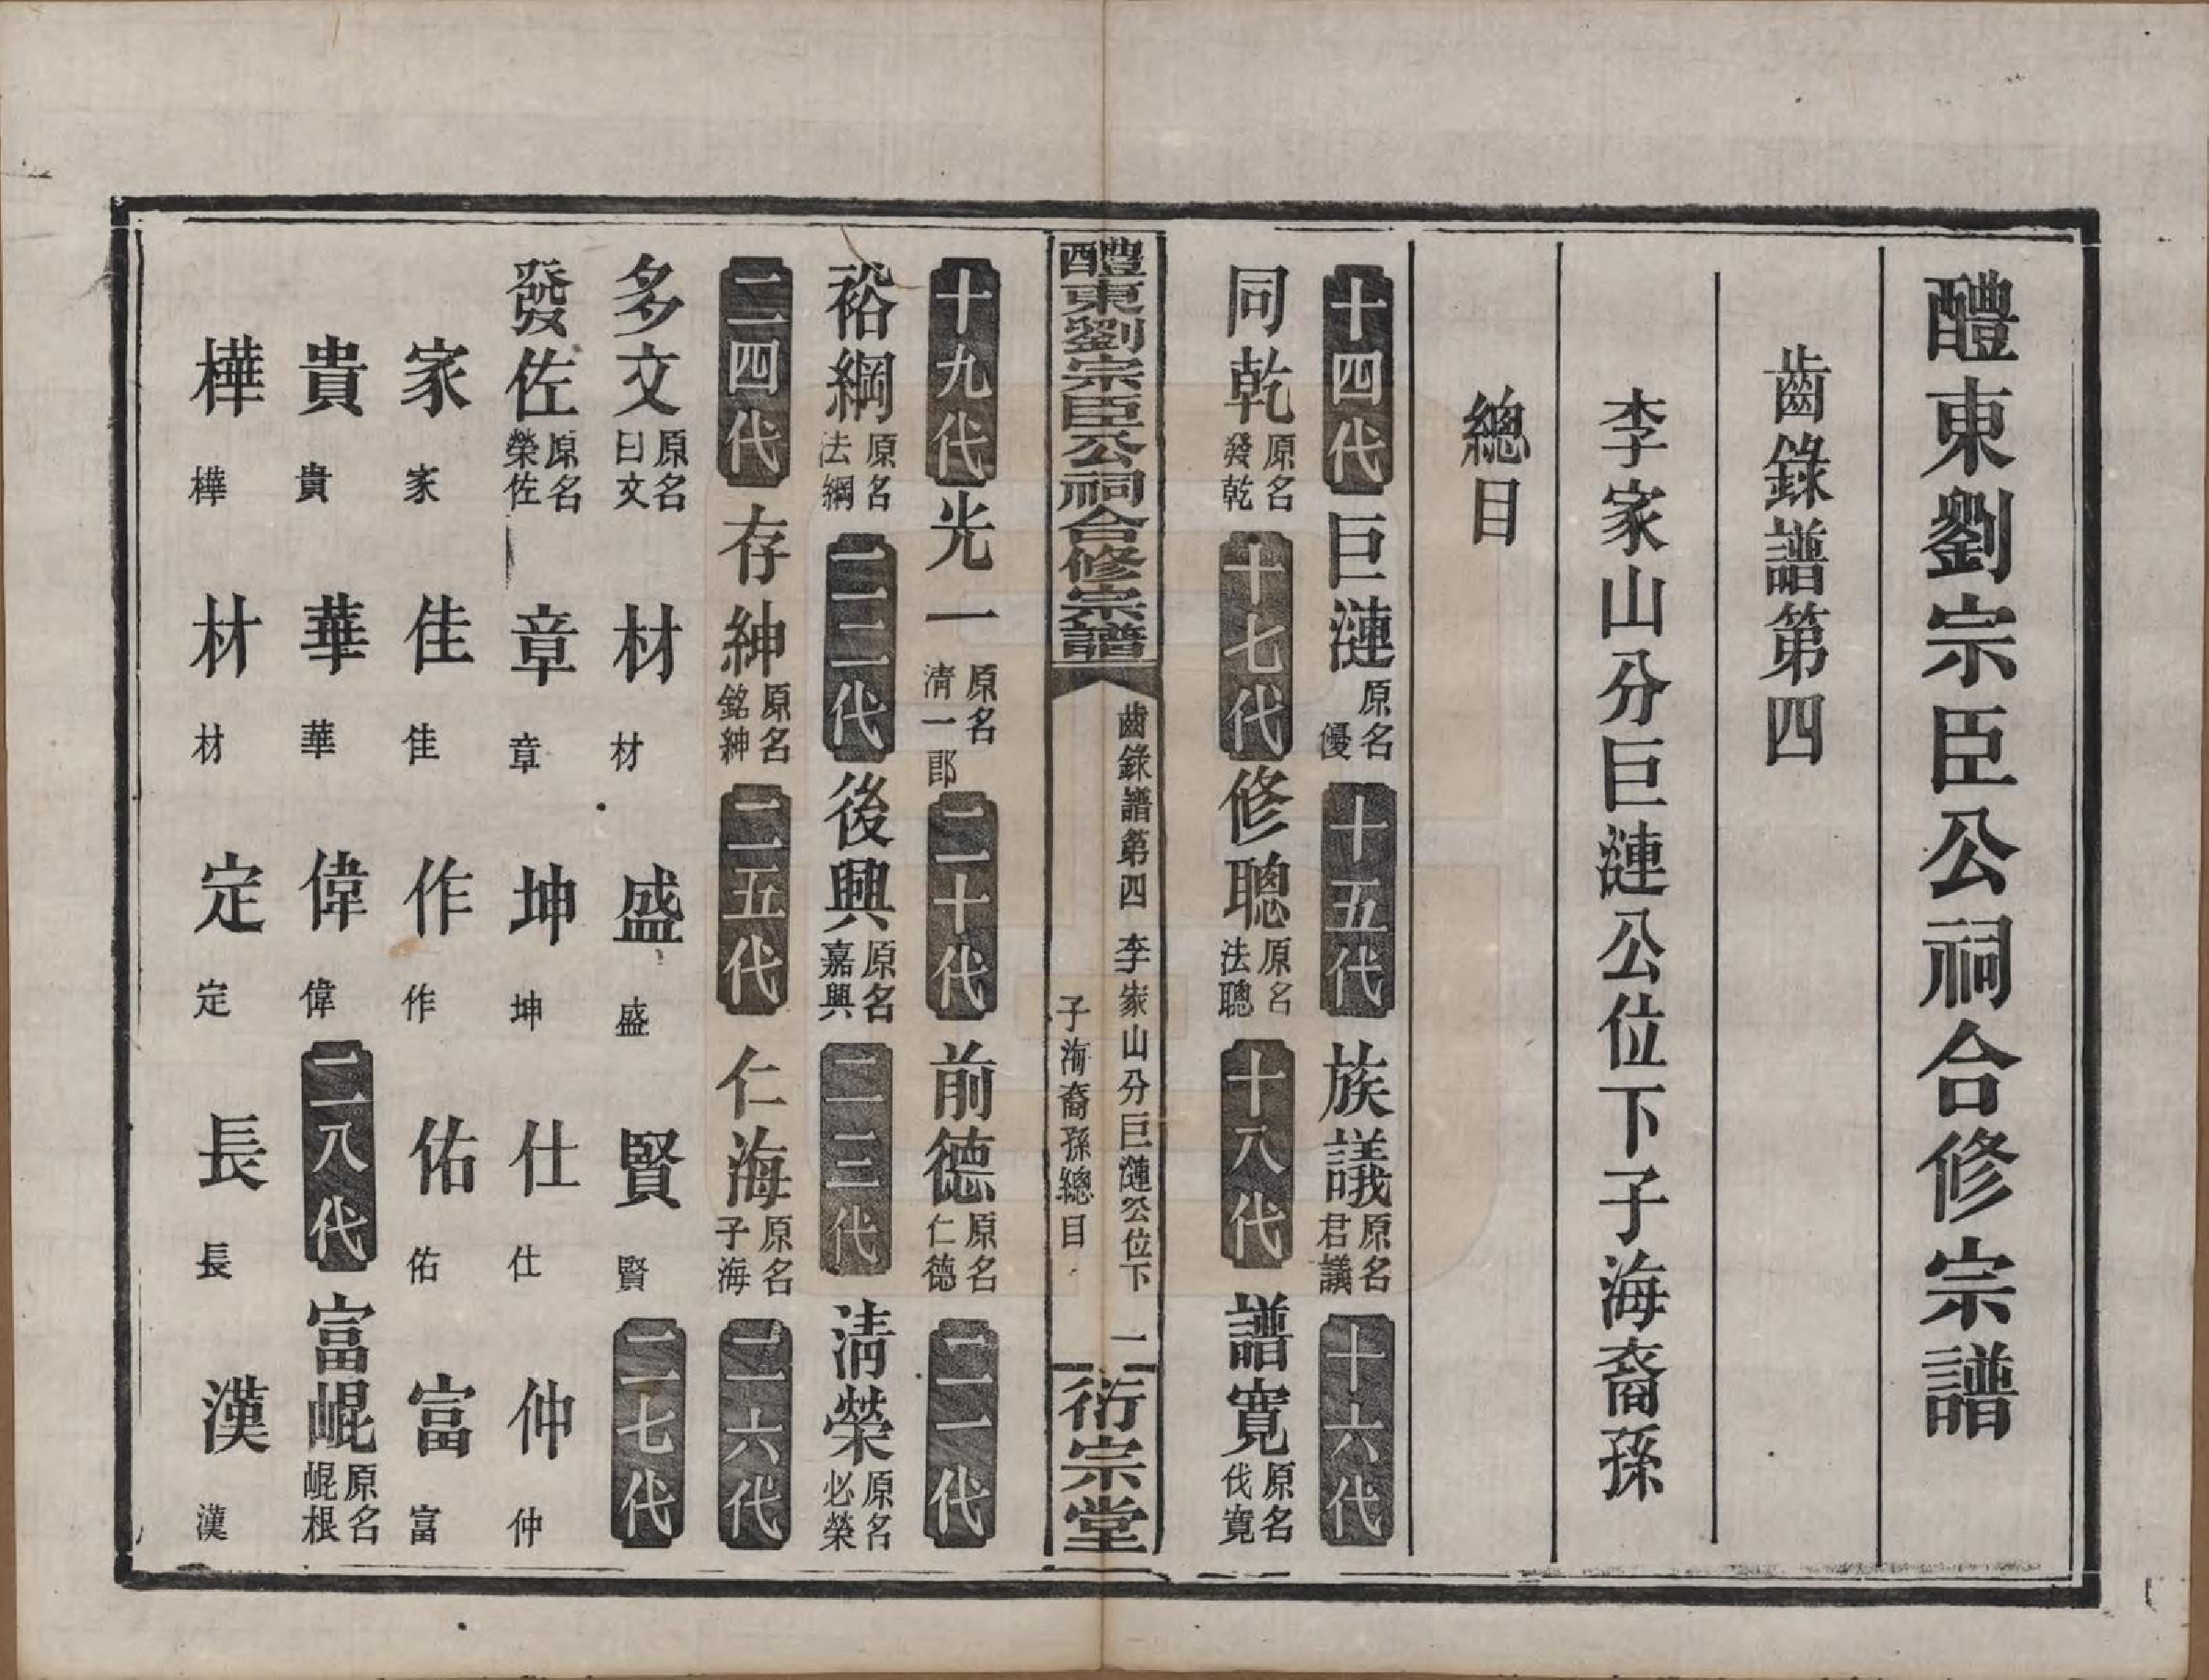 醴東劉宗臣公祠合修宗譜
齒錄譜第四
李家山分巨漣公位下子海裔孫
總目
十四代 巨漣 原名優 十五代 族議 原名君議 十六代
同乾 原名發乾 十七代 修聰 原名法聰 十八代 譜寬 原名伐寬
醴東劉宗臣公祠合修宗譜 齒錄譜第四 李家山分巨漣公位下子海裔孫總目 一 衍宗堂
十九代 光一 原名清一郎 二十代 前德 原名仁德 二一代
裕綱 原名法綱 二二代 後興 原名嘉興 二三代 清榮 原名必榮
二四代 存紳 原名銘紳 二五代 仁海 原名子海 二六代
多文 原名曰文 材 材 盛 盛 賢 賢 二七代
發佐 原名榮佐 章 章 坤 坤 仕 仕 仲 仲
家 家 佳 佳 作 作 佑 佑 富 富
貴 貴 華 華 偉 偉 二八代 富崐 原名崐根
樺 樺 材 材 定 定 長 長 漢 漢